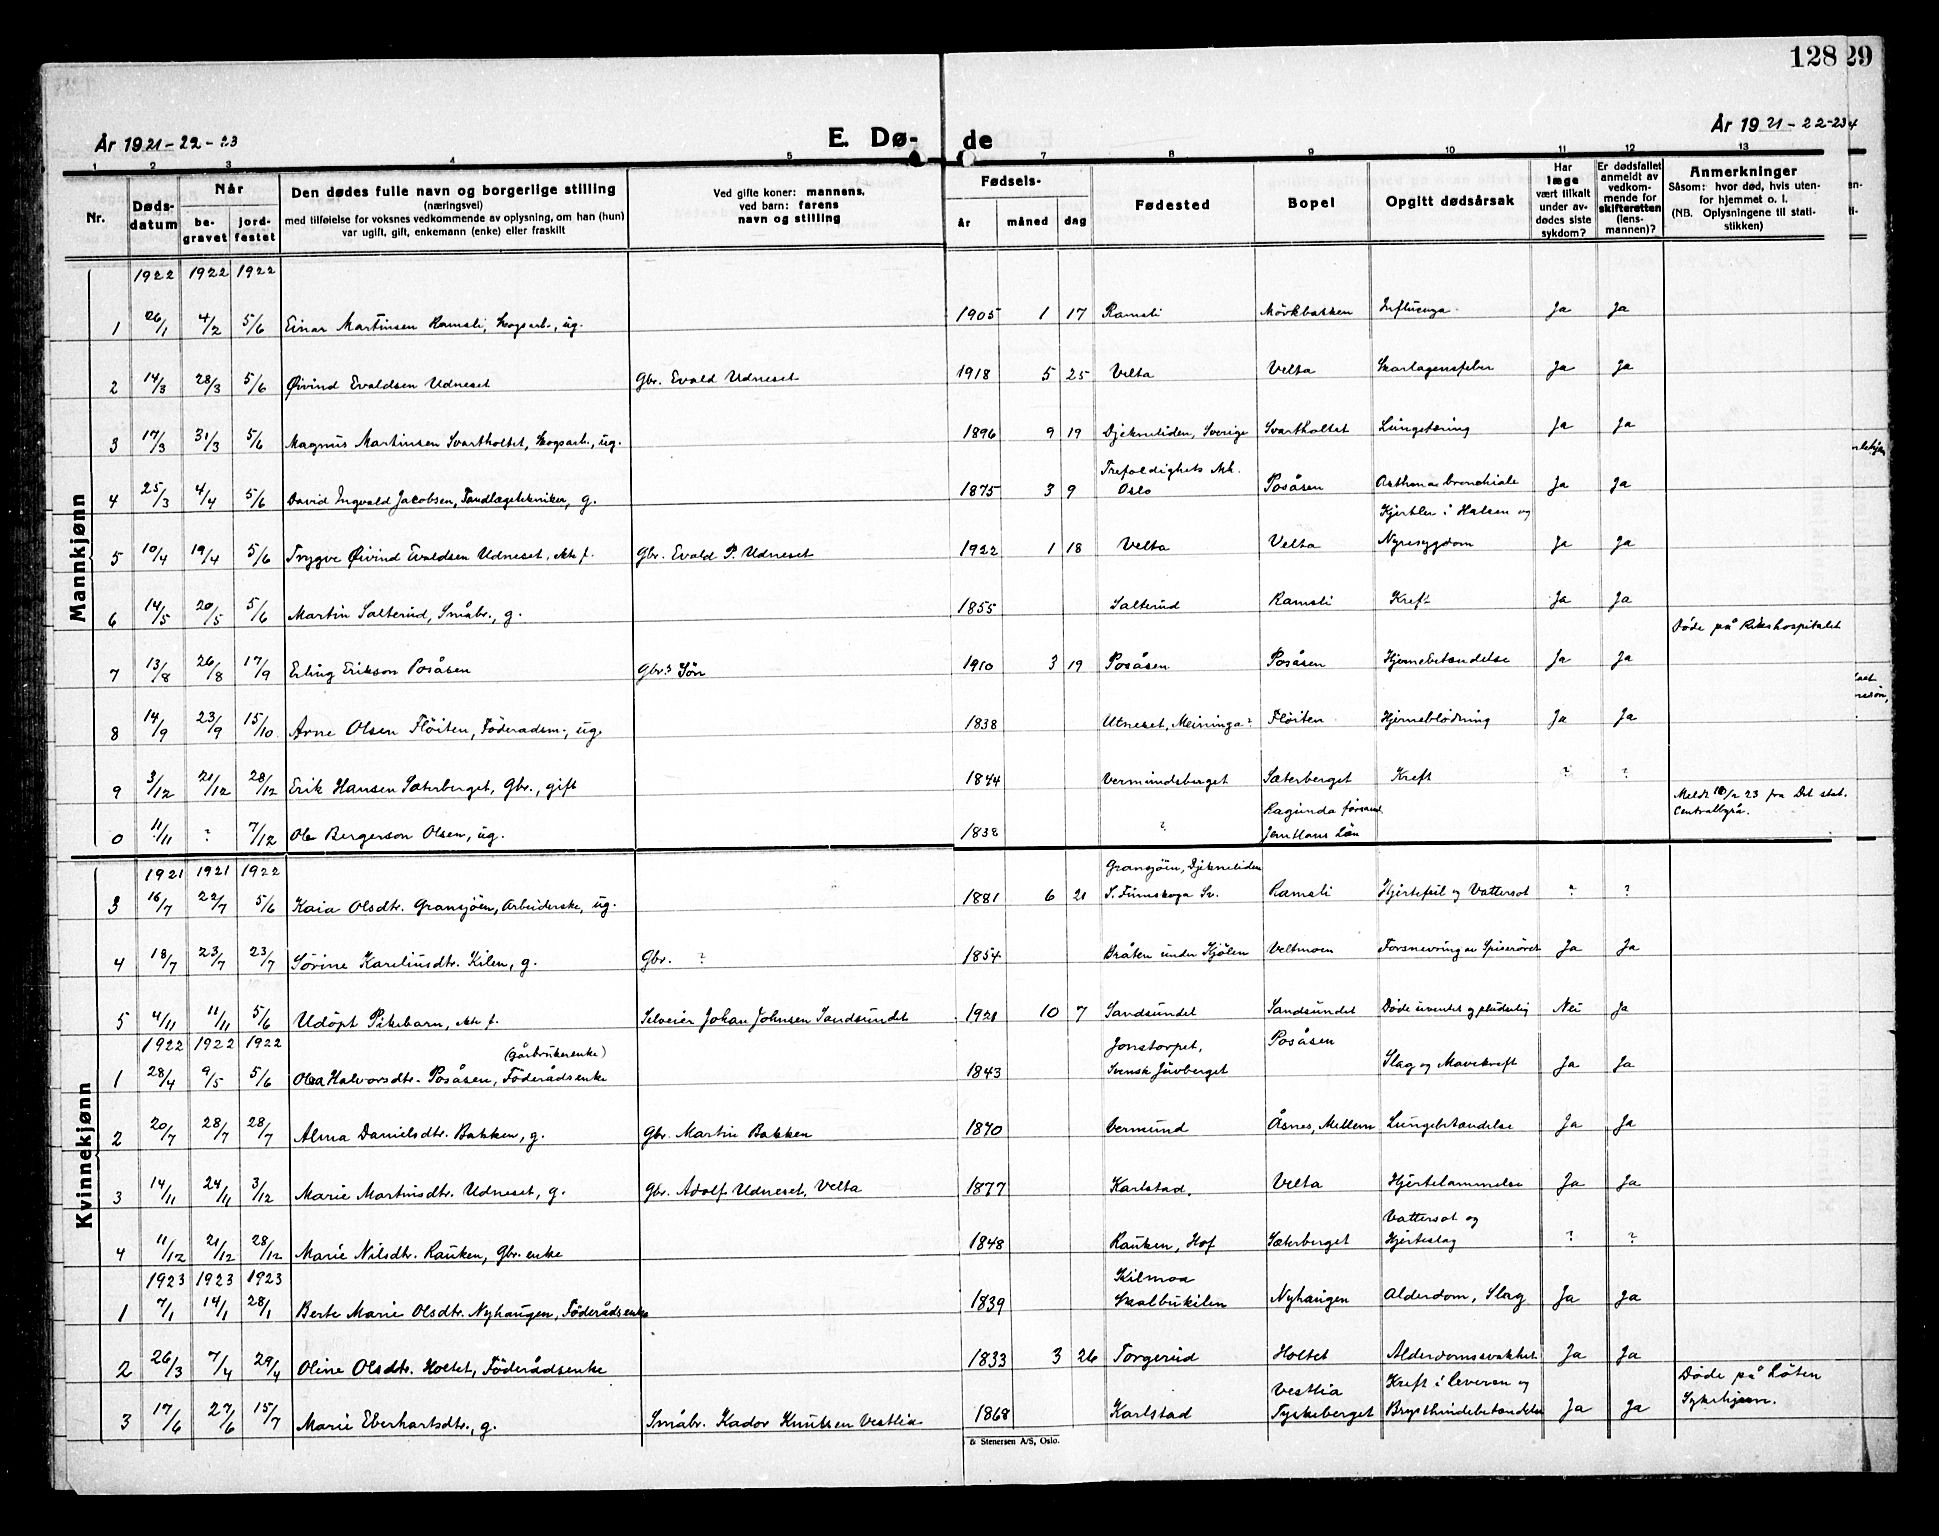 128 29
År 1921-22-23
E. Dø-
de
År 1921-22-23 4
1 2 3 4 5 7 8 9 10 11 12 13
Nr.
Døds-
datum
Når
be-
gravet
jord-
festet
Den dødes fulle navn og borgerlige stilling
(næringsvei)
med tilføielse for voksnes vedkommende av oplysning, om han (hun)
var ugift, gift, enkemann (enke) eller fraskilt
Ved gifte koner: mannens,
ved barn: farens
navn og stilling
Fødsels-
år måned dag
Fødested
Bopel
Opgitt dødsårsak
Har
læge
vært tilkalt
under av-
dødes siste
sykdom?
Er dødsfallet
anmeldt av
vedkom-
mende for
skifteretten
(lens-
mannen)?
Anmerkninger
Såsom: hvor død, hvis uten-
for hjemmet o. l.
(NB. Oplysningene til stati-
stikken)
Mannkjønn
1922 1922 1922
1 26/1 4/2 5/6 Einar Martinsen Ramsli, Skogsarb., ug. 1905 1 17 Ramsli Mörkbakken Influenza Ja Ja
2 14/3 28/3 5/6 Øivind Evaldsen Udneset Gbr. Evald Udneset 1918 5 25 Velta Velta Skarlagensfeber Ja Ja
3 17/3 31/3 5/6 Magnus Martinsen Svartholtet, Skogsarb., ug. 1896 9 19 Djekneliden, Sverige Svartholtet Lungetæring Ja Ja
4 25/3 4/4 5/6 David Ingvald Jacobsen, Tandlægetekniker, g. 1875 3 9 Trefoldighets Mk. Oslo Posåsen Asthma bronchiale Ja Ja
5 10/4 19/4 5/6 Trygve Øivind Evaldsen Udneset, ekte f. Gbr. Evald P. Udneset 1922 1 18 Velta Velta Kjertler i Halsen og Nyresygdom Ja Ja
6 14/5 20/5 5/6 Martin Salterud, Småbr., g. 1855 Salterud Ramsli Kreft Ja Ja
7 13/8 26/8 17/9 Erling Erikson Posåsen Gbr. Søn 1910 3 19 Posåsen Posåsen Hjernebetændelse Ja Ja Døde på Rikshospitalet
8 14/9 23/9 15/10 Arne Olsen Flöiten, Föderadsm., ug. 1838 Utneset, Meininga? Flöiten Hjerneblödning Ja Ja
9 3/12 21/12 28/12 Erik Hansen Sæterberget, Gbr., gift 1844 Vermundsberget Sæterberget Kreft ? ?
0 11/11 ? 7/12 Ole Bergerson Olsen, ug. 1838 ? Ragunda församl. Jemtlans Län Meldt 10/2 23 fra Det stat. Centralbyrå.
Kvinnekjønn
1921 1921 1922
3 16/7 22/7 5/6 Kaia Olsdtr. Gransjöen, Arbeiderske, ug. 1881 6 21 Gransjöen, Djekneliden S. Finnskoga Sv. Ramsli Hjertefeil og Vattersot ? ?
4 18/7 23/7 23/7 Sörine Kareliusdtr. Kilen, g. Gbr. ? 1854 Bråten under Kjölen Veltmoen Forsnevring av Spiserøret Ja Ja
5 4/11 11/11 5/6 Udöpt Pikebarn, ekte f. Selveier Johan Johnsen Sandsundet 1921 10 7 Sandsundet Sandsundet Døde uventet og pludselig Nei Ja
1922 1922 1922
1 28/4 9/5 5/6 Olea Halvorsdtr. Posåsen, Föderådsenke (gårbrukerenke) 1843 Jonstorpet, Svensk Juvberget Posåsen Slag og Mavekreft Ja Ja
2 20/7 28/7 28/7 Alma Danielsdtr. Bakken, g. Gbr. Martin Bakken 1870 Vermund Åsnes, Mellem Lungebetændelse Ja Ja
3 14/11 24/11 3/12 Marie Martinsdtr. Udneset, g. Gbr. Adolf Udneset, Velta 1877 Karlstad. Velta Hjertelammelse Ja Ja
4 11/12 21/12 28/12 Marie Nilsdtr. Rauken, Gbr. enke 1848 Rauken, Hof Sæterberget Vattersot og Hjerteslag ? ?
1923 1923 1923
1 7/1 14/1 28/1 Berte Marie Olsdtr. Nyhaugen, Föderådsenke 1839 Kilmoa Skalbukilen Nyhaugen Alderdom, Slag Ja Ja
2 26/3 7/4 29/4 Oline Olsdtr. Holtet, Föderådsenke 1833 3 26 Torgerud Holtet Alderdomssvakhet Ja Ja
3 17/6 27/6 15/7 Marie Eberhartsdtr., g. Småbr. Kador Knutsen Vestlia 1868 Karlstad Vestlia Tyskeberget Kreft i Leveren og Brysthindebetændelse Ja Ja Døde på Löten Sykehjem.
Stenersen A/S, Oslo.